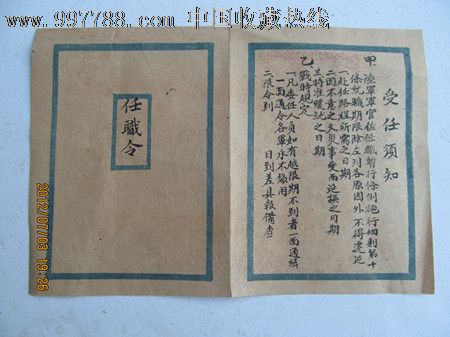 www.997788.com 中国收藏热线
受任须知
甲 陸軍軍官佐任職暫行條例施行細則第十
條就職期限除左列各原因外不得遷延
一赴任路程所需之日期
二因不意之天災事變而延誤之日期
三特准緩就之日期
乙 戰時規定
一凡委任人員如有越限期不到者一面通緝
一面通令各軍永不錄用
二限令到 日到差具報備查
任職令
2012/07/03 19:26